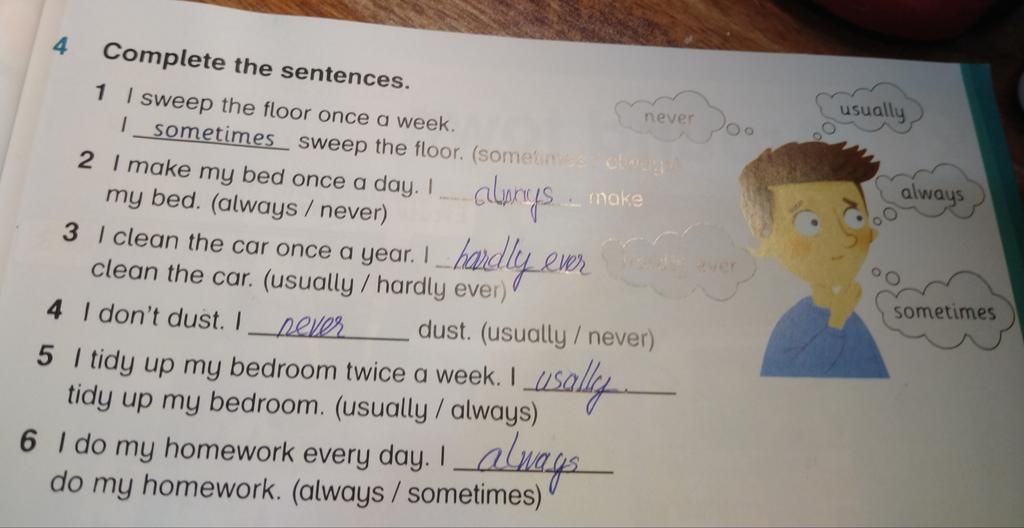 4 Complete the sentences.
1 I sweep the floor once a week.
I sometimes sweep the floor. (sometimes / always)
2 I make my bed once a day. I always. make
my bed. (always / never)
3 I clean the car once a year. I hardly ever
clean the car. (usually / hardly ever)
4 I don't dust. I never dust. (usually / never)
5 I tidy up my bedroom twice a week. I usally.
tidy up my bedroom. (usually / always)
6 I do my homework every day. I always
do my homework. (always / sometimes)
never
usually
always
hardly ever
sometimes